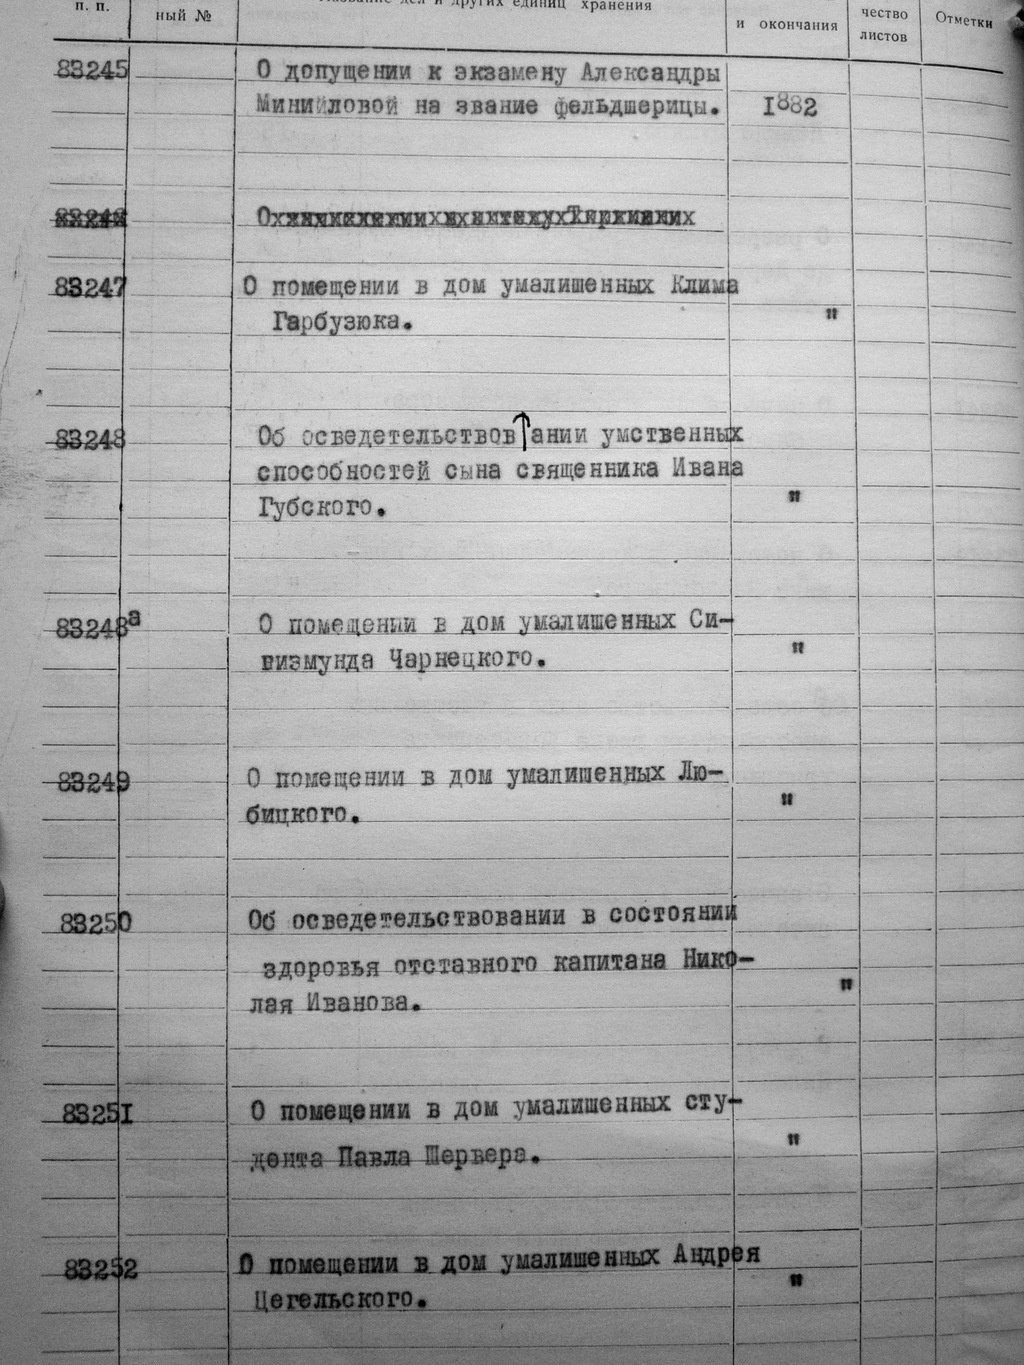 п. п.
ный №
Название дел и других единиц хранения
и окончания
чество
листов
Отметки
83245
О допущении к экзамену Александры
Миниловой на звание фельдшерицы.
1882
83247
О помещении в дом умалишенных Клима
Гарбузюка.
"
83248
Об осведетельствов↑ании умственных
способностей сына священника Ивана
Губского.
"
83248а
О помещении в дом умалишенных Си-
визмунда Чарнецкого.
"
83249
О помещении в дом умалишенных Лю-
бицкого.
"
83250
Об осведетельствовании в состоянии
здоровья отставного капитана Нико-
лая Иванова.
"
83251
О помещении в дом умалишенных сту-
дента Павла Шервера.
"
83252
О помещении в дом умалишенных Андрея
Цегельского.
"